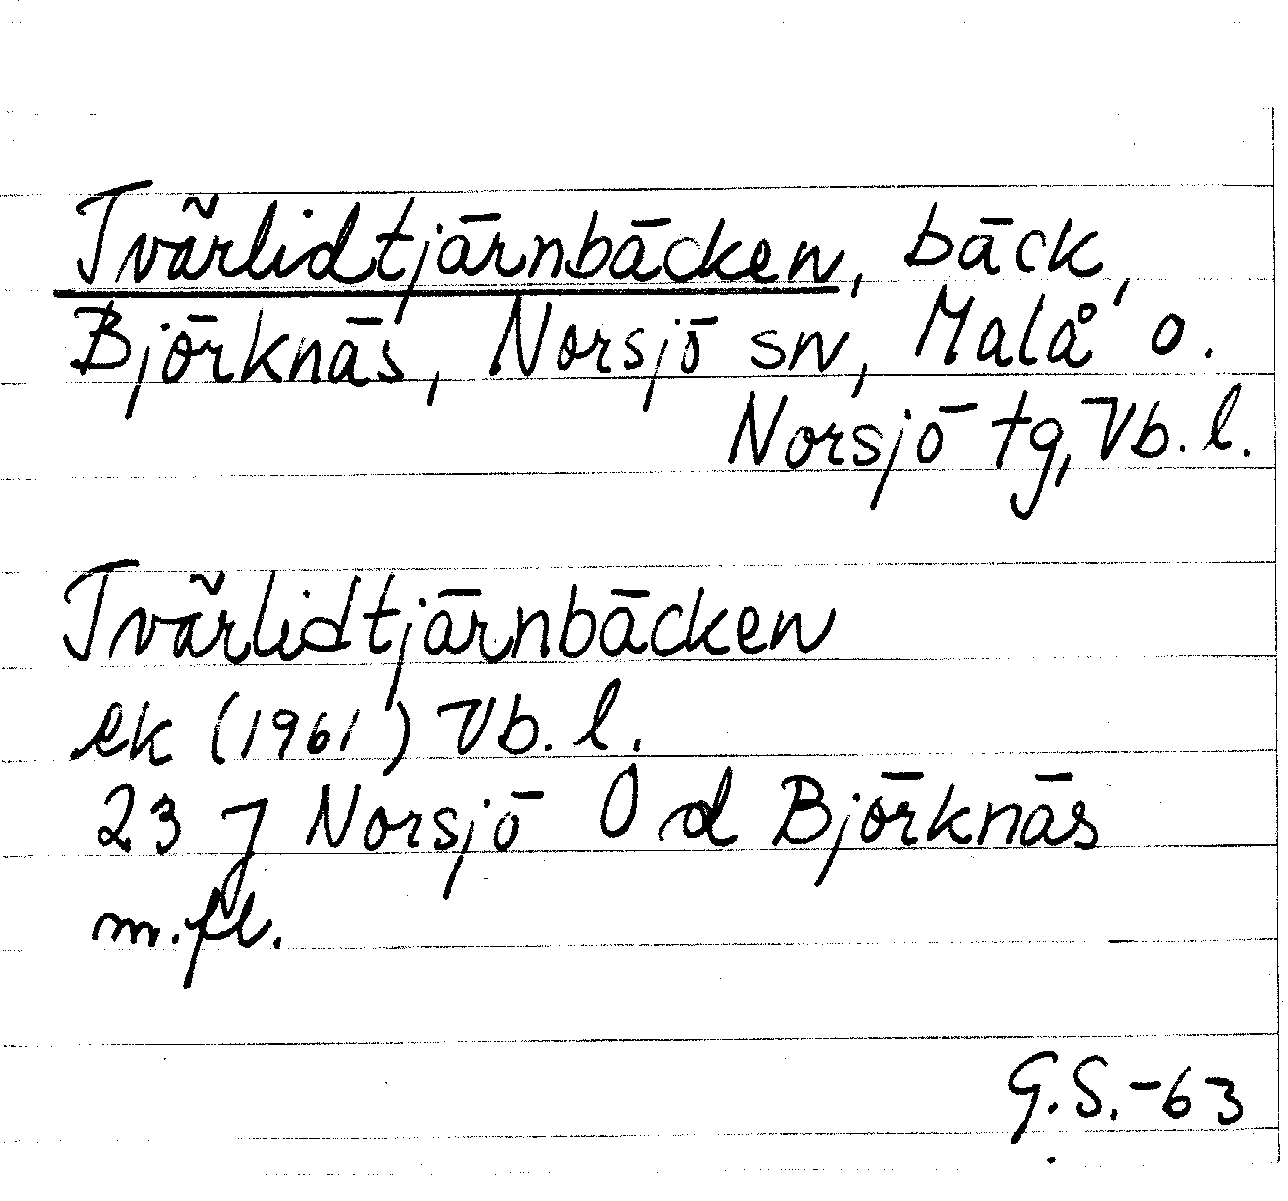 Tvärlidtjärnbäcken, bäck,
Björknäs, Norsjö sn, Malå o.
Norsjö tg, Vb. l.
Tvärlidtjärnbäcken
ek (1961) Vb. l.
23 J Norsjö O d Björknäs
m.fl.
G.S.-63